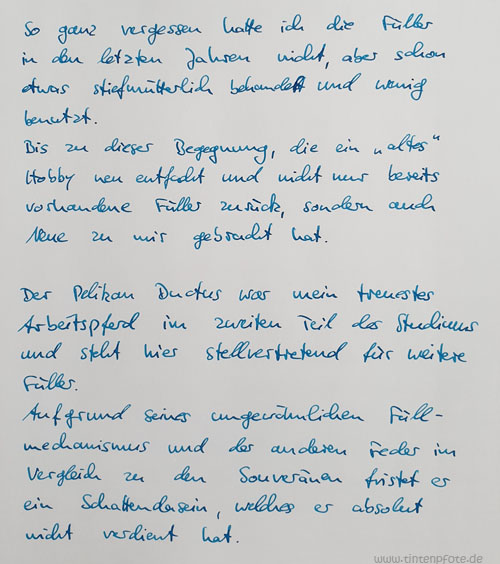 So ganz vergessen hatte ich die Füller
in den letzten Jahren nicht, aber schon
etwas stiefmütterlich behandelt und wenig
benutzt.
Bis zu dieser Begegnung, die ein „altes“
Hobby neu entfacht und nicht nur bereits
vorhandene Füller zurück, sondern auch
Neue zu mir gebracht hat.
Der Pelikan Ductus war mein treuestes
Arbeitspferd im zweiten Teil des Studiums
und steht hier stellvertretend für weitere
Füller.
Aufgrund seines ungewöhnlichen Füll-
mechanismus und der anderen Feder im
Vergleich zu den Souveränen fristet er
ein Schattendasein, welches er absolut
nicht verdient hat.
www.tintenpfote.de